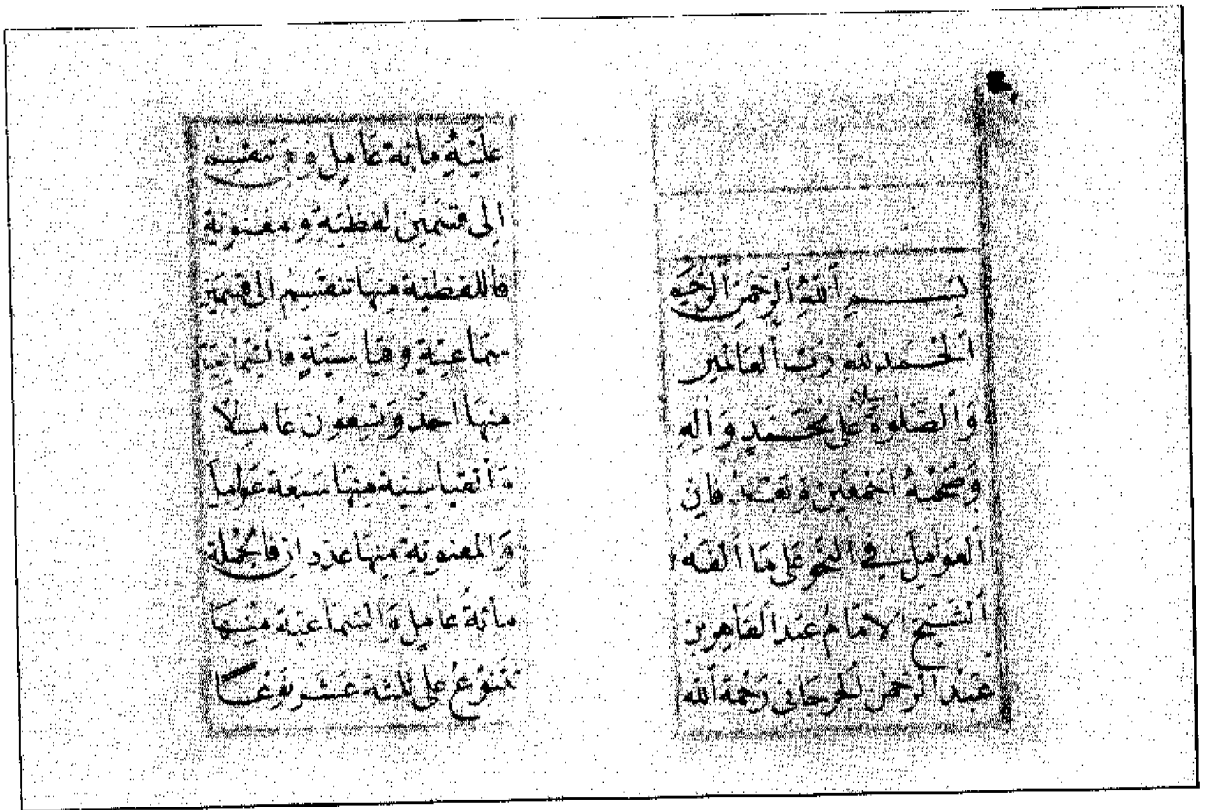 بسم الله الرحمن الرحيم
الحمد لله رب العالمين
والصلوة على محمد واله
وصحبه اجمعين وبعد فان
العوامل في النحو على ما الفه
الشيخ الامام عبد القاهر بن
عبد الرحمن الجرجاني رحمة الله
عليه مائة عامل وهي تنقسم
الى قسمين لفظية ومعنوية
فاللفظية منها تنقسم الى قسمين
سماعية وقياسية فالسماعية
منها احد وتسعون عاملا
والقياسية منها سبعة عوامل
والمعنوية منها عددان فالجملة
مائة عامل والسماعية منها
تتنوع على ثلثة عشر نوعا